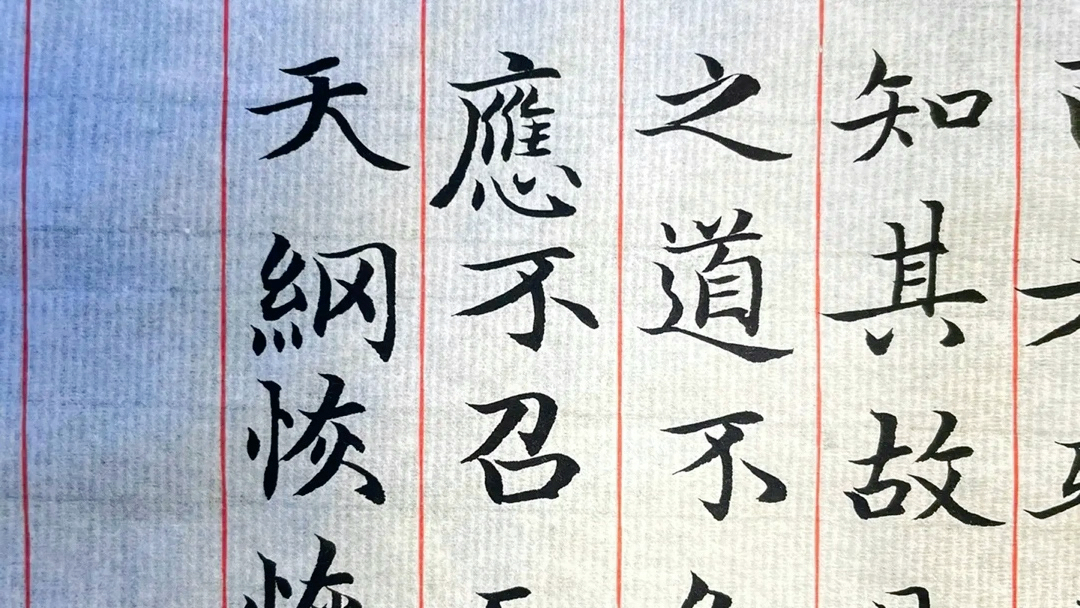 知其故
之道不
應不召
天網恢恢